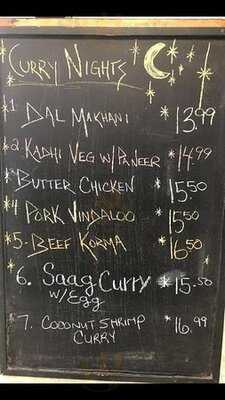 Curry Nights
*1 Dal Makhani *13.99
*2 Kadhi Veg w/Paneer *14.99
* Butter Chicken *15.50
*4 Pork Vindaloo *15.50
*5. Beef Korma *16.50
*6. Saag Curry *15.50
w/Egg
*7. Coconut Shrimp *16.99
Curry